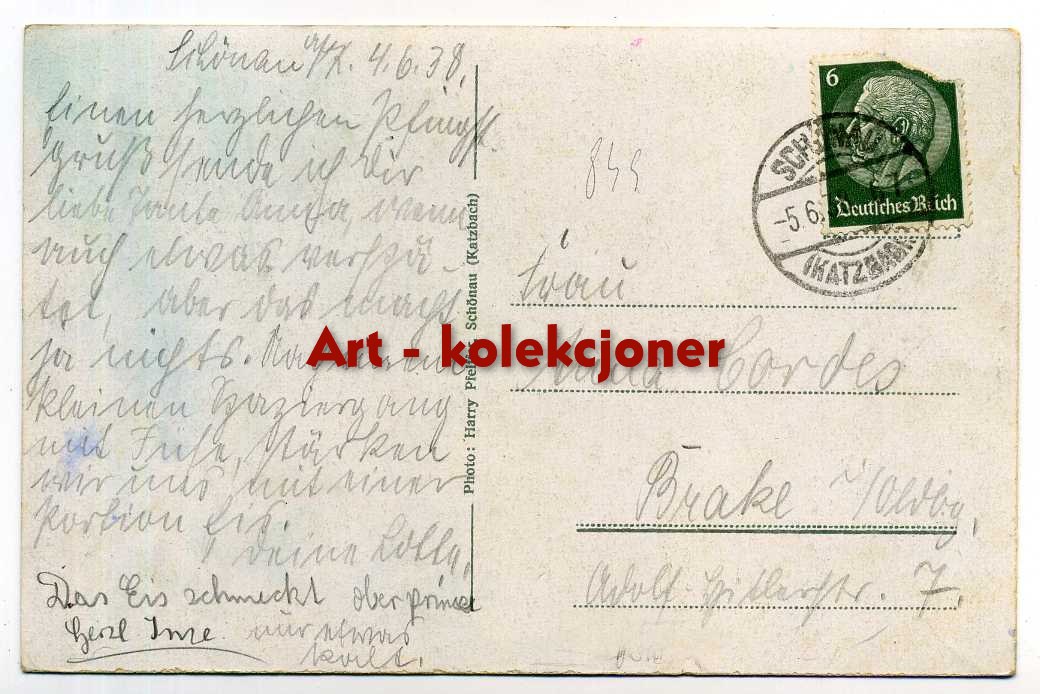 Schönau a/K. 4.6.38.
Einen herzlichen Pfingst
gruß sende ich Dir
liebe Tante Anna, wenn
auch etwas verspä-
tet, aber das macht
ja nichts. Nach einem
kleinen Spaziergang
mit Füße, stärken
wir uns mit einer
Portion Eis.
Deine Lotte,
Das Eis schmeckt aber prima
Herzl
nur etwas
kalt.
Photo: Harry Schönau (Katzbach)
6
Deutsches Reich
SCHÖNAU
-5.6.
(KATZBACH)
Frau
Anna Cordes
Brake i/Oldbg,
Adolf-Hitlerstr. 7.
Art - kolekcjoner